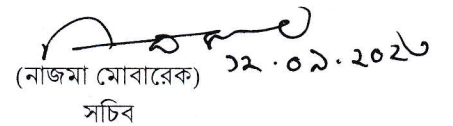 ১২.০৯.২০২৬
(নাজমা মোবারেক)
সচিব